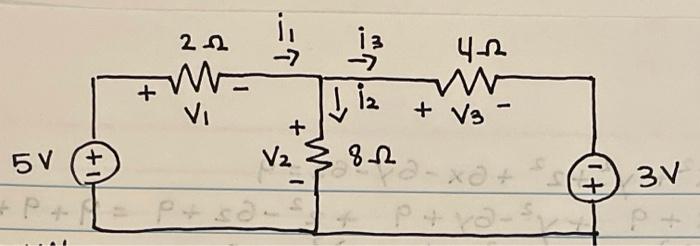 2Ω i1 → i3 → 4Ω
+ V1 - ↓ i2 + V3 -
5V + - V2 + - 8Ω - + 3V